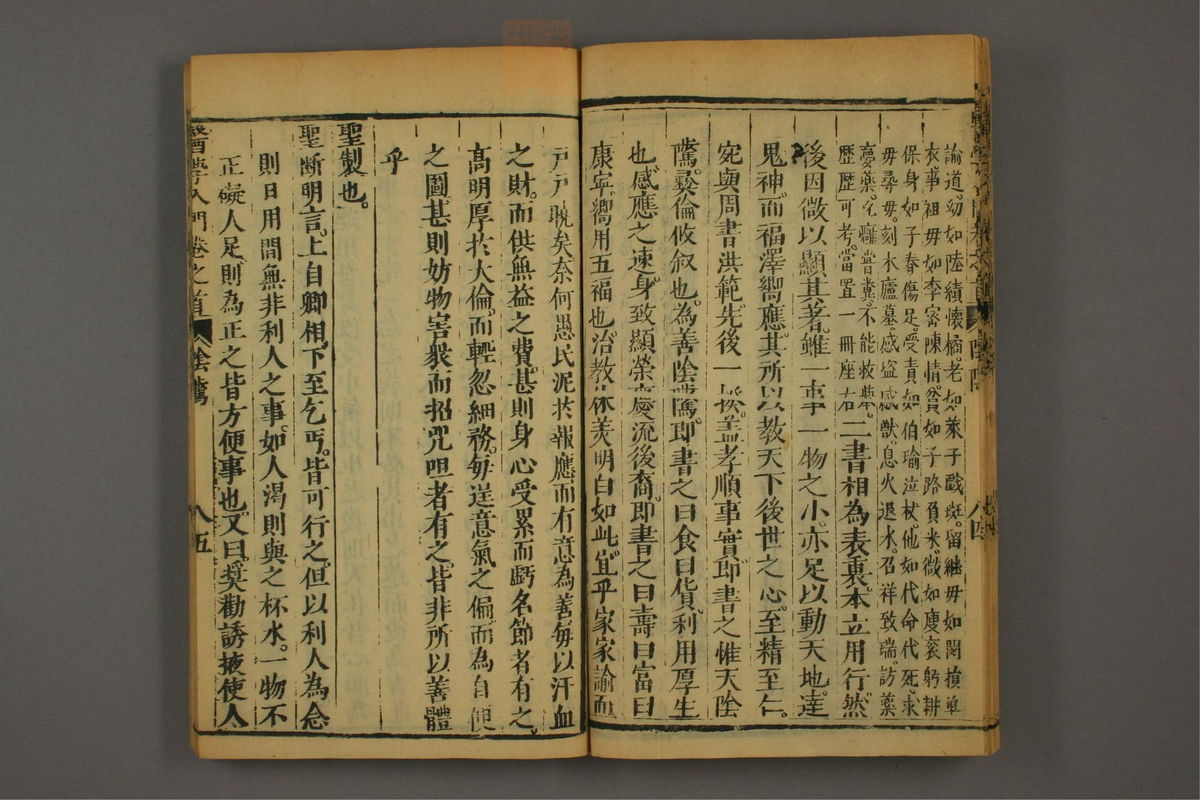 論道。幼如陸績懷橘。老如萊子戲斑。留繼母如閔損單
衣。事祖母如李密陳情。貧如子路負米。微如庾袞躬耕
保身如子春傷足。受責如伯瑜泣杖。他如代命代死。求
母尋母。刻木廬墓。感盜感獸。息火退水。召祥致瑞。訪藥
夢藥。乞醫嘗糞。不能枚舉。
歷歷可考。當置一冊座右。二書相為表裏。本立用行。然
後因微以顯其著。雖一事一物之小。亦足以動天地。達
鬼神。而福澤嚮應。其所以教天下後世之心。至精至仁。
宛與周書洪範。先後一揆。蓋孝順事實。即書之惟天陰
騭。彝倫攸敘也。為善陰騭。即書之曰食曰貨。利用厚生
也。感應之速。身致顯榮。慶流後裔。即書之曰壽曰富曰
康寧。嚮用五福也。治教休美。明白如此。宜乎家家諭而
戶戶曉矣。奈何愚民泥於報應而有意為善。每以汗血
之財。而供無益之費。甚則身心受累而虧名節者有之。
高明厚於大倫。而輕忽細務。每逞意氣之偏。而為自便
之圖。甚則妨物害衆而招咒咀者有之。皆非所以善體
乎
聖製也。
聖斷明言。上自卿相。下至乞丐。皆可行之。但以利人為念
則日用間無非利人之事。如人渴則與之杯水。一物不
正礙人足。則為正之。皆方便事也。又曰。奨勸誘掖使人
醫學入門 卷之首 陰騭 八五
陰騭 八四